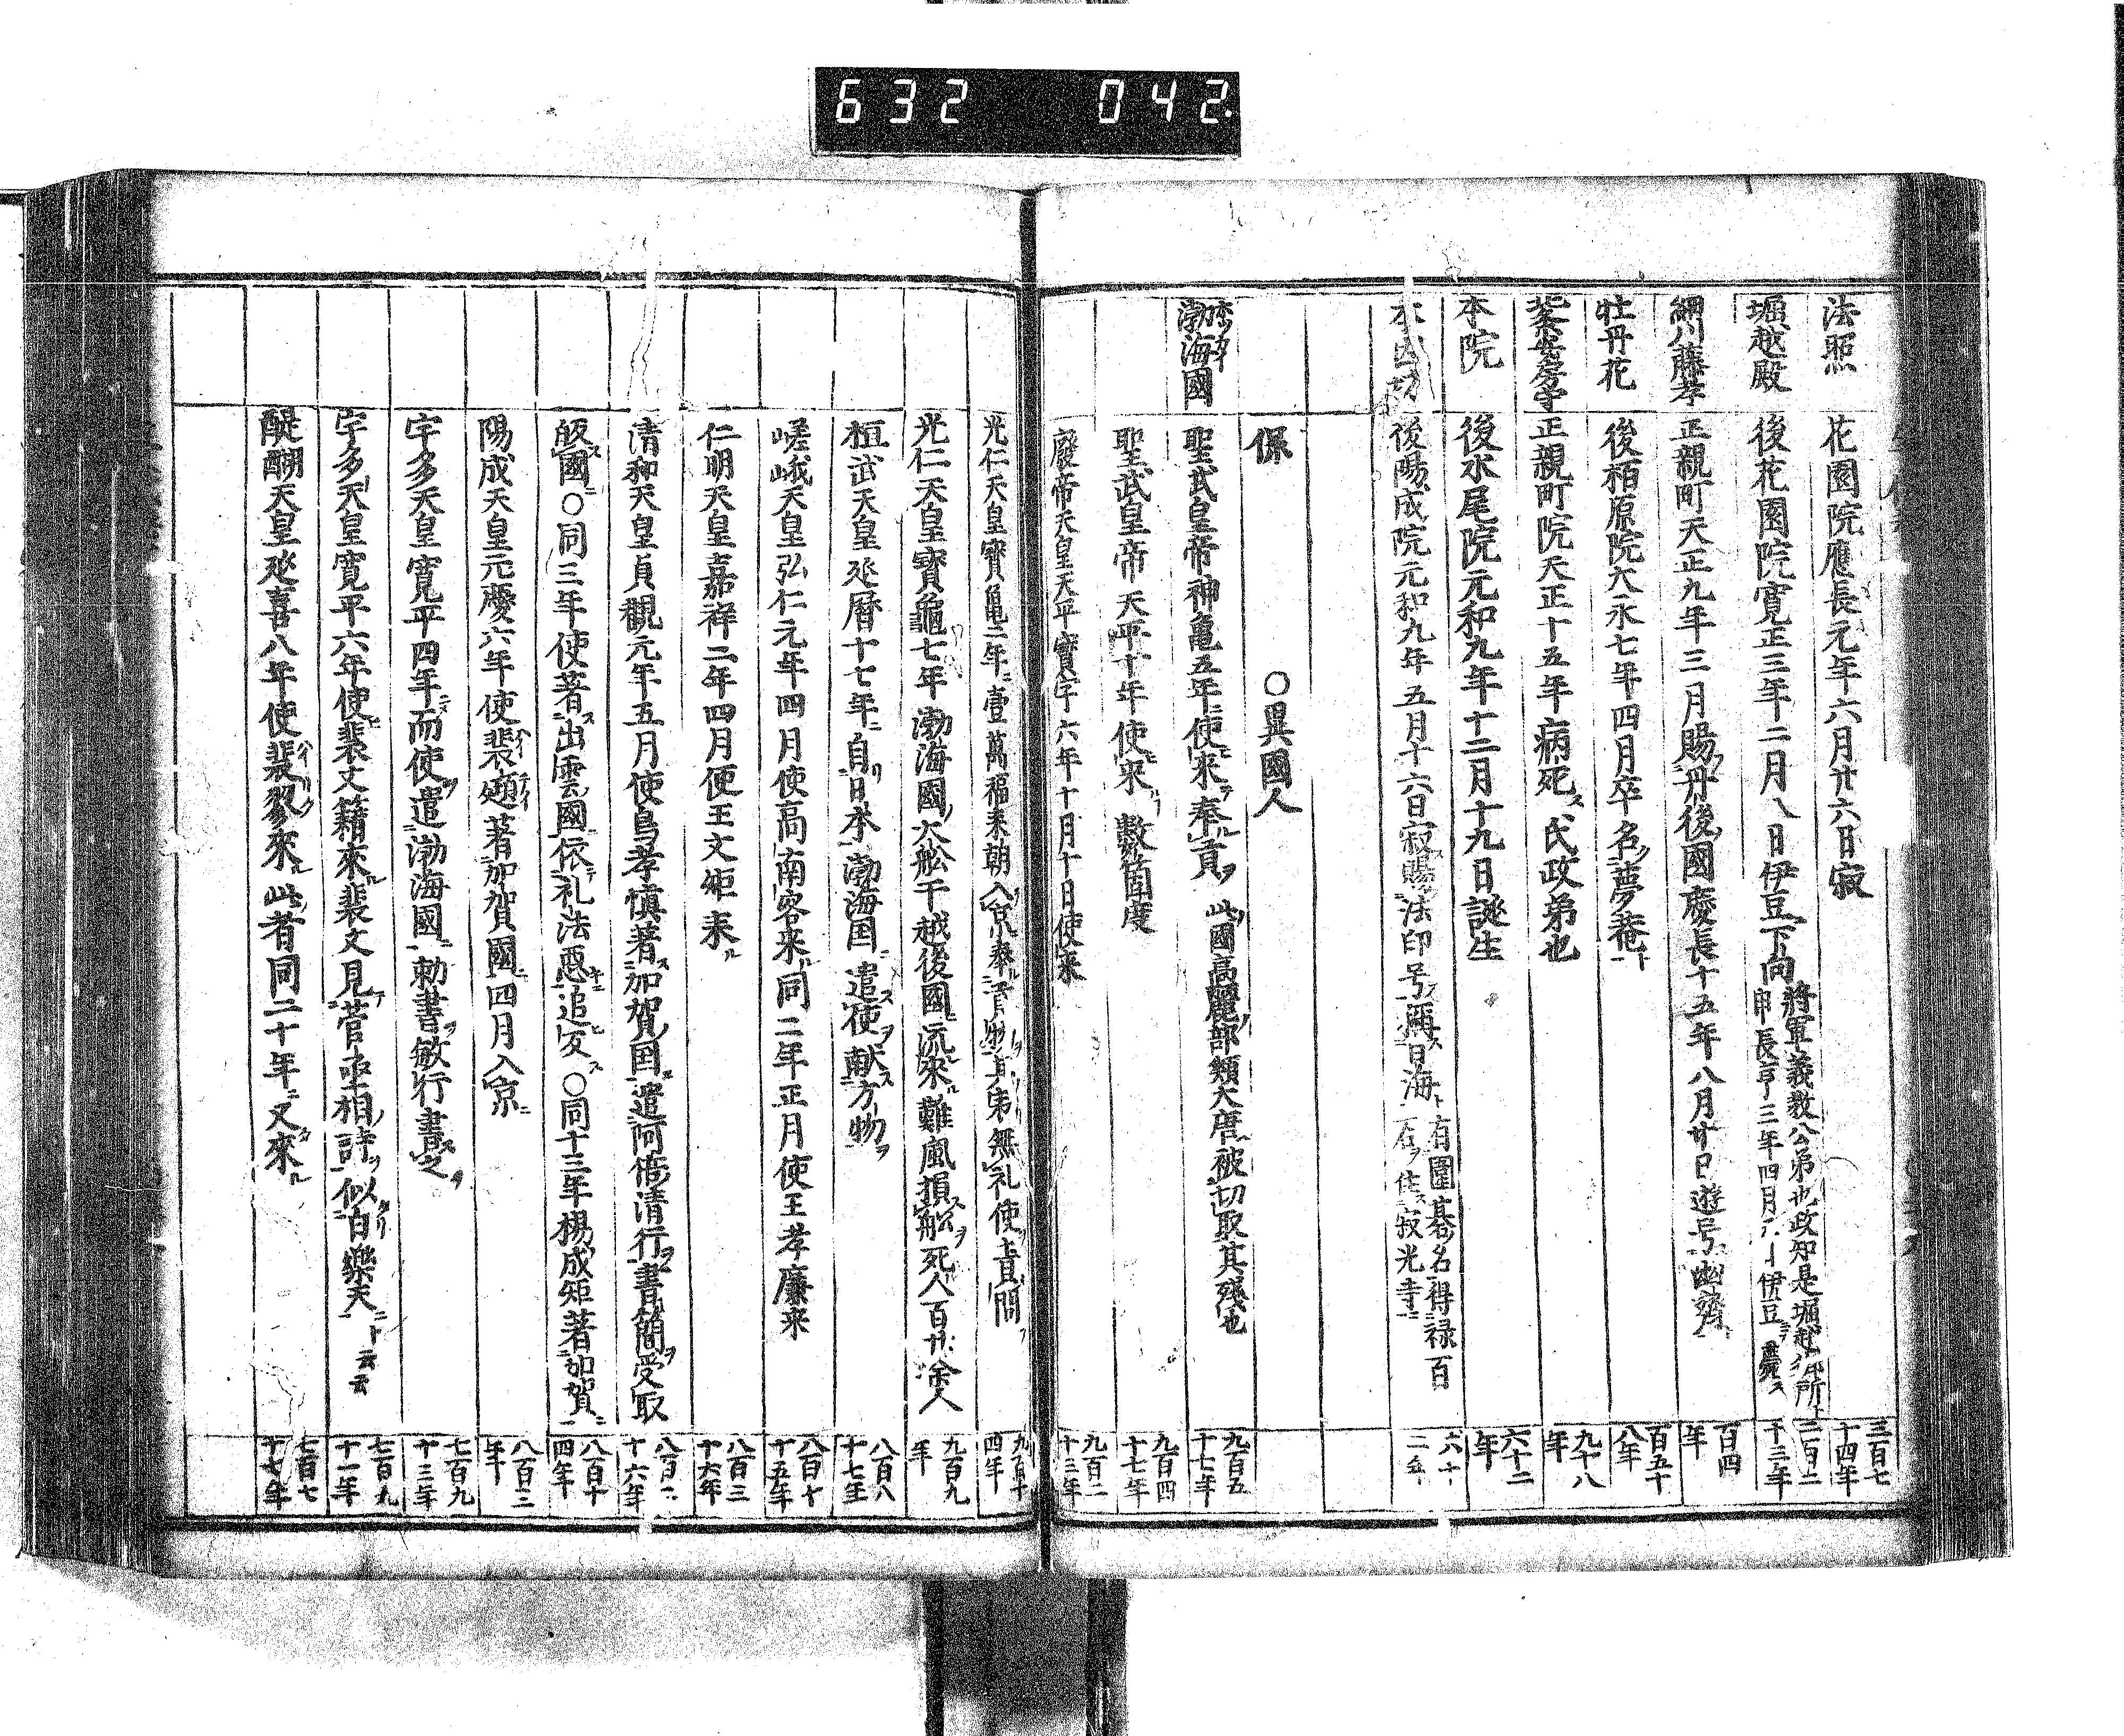 632 042.
法照 花園院應長元年六月廿六日寂 三百七十四年
堀越殿 後花園院寛正三年二月八日伊豆下向 將軍義教公弟也政知是堀越御所ト申長享三年四月 伊豆ニ薨ス 二百二十三年
細川藤孝 正親町天正九年三月賜丹後國慶長十五年八月廿日逝号幽齋 百四年
牡丹花 後栢原院大永七年四月卒名夢菴ト 百五十八年
北条安房守 正親町院天正十五年病死ス氏政弟也 九十八年
本院 後水尾院元和九年十二月十九日誕生 六十二年
本因坊 後陽成院元和九年五月十六日寂賜法印号 日海ト 有圍碁名得禄百石ヲ住ス寂光寺ニ 六十二年
保 〇異國人
渤海國 聖武皇帝神亀五年ニ使來テ奉貢ヲ此國高麗部類大唐被切取其殘也 九百五十七年
聖武皇帝天平十年使来数箇度 九百四十七年
廢帝天皇天平寳字六年十月十日使来 九百二十三年
光仁天皇寳亀二年ニ壹萬福来朝入京奉 無礼使ヲ責問 九百十四年
光仁天皇寳龜七年渤海國ノ大舩干越後國流來ル難風損舩ヲ死人百廿余人 九百九年
桓武天皇延暦十七年ニ自リ日本渤海国ニ遣使ヲ献ス方物ヲ 八百八十七年
嵯峨天皇弘仁元年四月使高南客来ル同二年正月使王孝廉来 八百十五年
仁明天皇嘉祥二年四月使王文矩来ル 八百三十六年
清和天皇貞觀元年五月使烏孝愼著ス加賀国ニ遣阿倍清行ヲ書簡ヲ受取 八百二十六年
皈國ス〇同三年使著ス出雲國ニ依礼法惡キニ追反ス〇同十三年楊成矩著加賀ニ 八百十四年
陽成天皇元慶六年使裴頲著加賀國ニ四月入京ニ 八百三年
宇多天皇寛平四年而使遣渤海國ニ勅書ヲ敏行書之 七百九十三年
宇多天皇寛平六年使裴文籍來ル裴文見菅丞相ノ詩ヲ似白樂天ニト云云 七百九十一年
醍醐天皇延喜八年使裴璆來ル此者同二十年ニ又來ル 七百七十七年